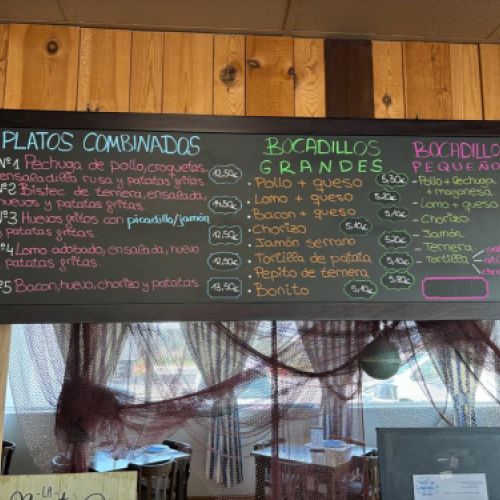 PLATOS COMBINADOS
Nº1 Pechuga de pollo, croquetas,
ensaladilla rusa y patatas fritas. 12,50€
Nº2 Bistec de ternera, ensalada,
huevos y patatas fritas. 14,50€
Nº3 Huevos fritos con picadillo/jamón
y patatas fritas. 12,50€
Nº4 Lomo adobado, ensalada, huevo
y patatas fritas. 12,50€
Nº5 Bacon, huevo, chorizo y patatas. 13,50€
BOCADILLOS
GRANDES
· Pollo + queso 5,30€
· Lomo + queso 5,20€
· Bacon + queso 5,10€
· Chorizo 5,10€
· Jamón serrano 5,20€
· Tortilla de patata 5,10€
· Pepito de ternera 5,80€
· Bonito 5,10€
BOCADILLO
PEQUEÑO
- Pollo + lechuga
+ mayonesa
- Lomo + queso
- Chorizo
- Jamón
- Ternera
- Tortilla